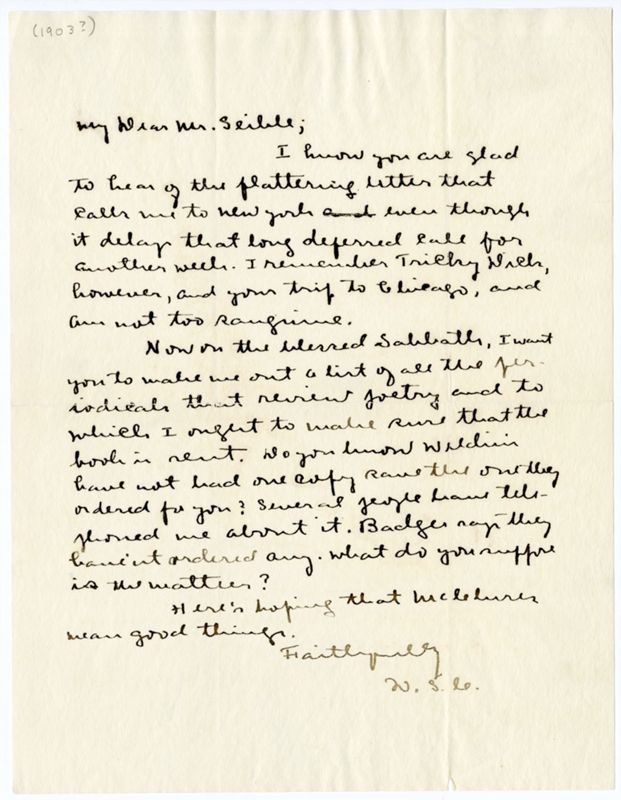 (1903?)
My Dear Mr. Seibel;
I know you are glad
to hear of the flattering letter that
calls me to New York and even though
it delays that long deferred call for
another week. I remember Tricky Dick,
however, and your trip to Chicago, and
am not too sanguine.
Now on the blessed Sabbath, I want
you to make me out a list of all the per-
iodicals that review poetry and to
which I ought to make sure that the
book is sent. Do you know Weldin's
have not had one copy save the one they
ordered for you? Several people have tele-
phoned me about it. Badger says they
haven't ordered any. What do you suppose
is the matter?
Here's hoping that McClures
mean good things.
Faithfully
W. S. C.